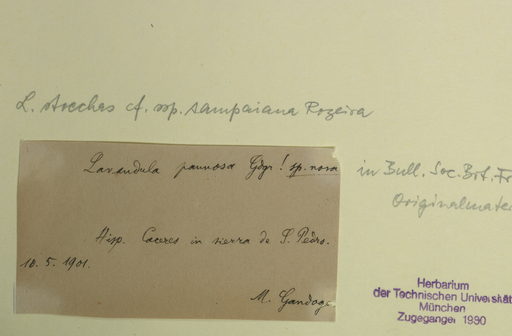 L. stoechas cf. ssp. sampaiana Rozeira
Lavandula pannosa Gdgr! sp. nova
in Bull. Soc. Bot. Fr
Originalmate
Hisp. Caceres in sierra de S. Pedro.
10. 5. 1901.
M. Gandoge
Herbarium
der Technischen Universität
München
Zugegangen 1990